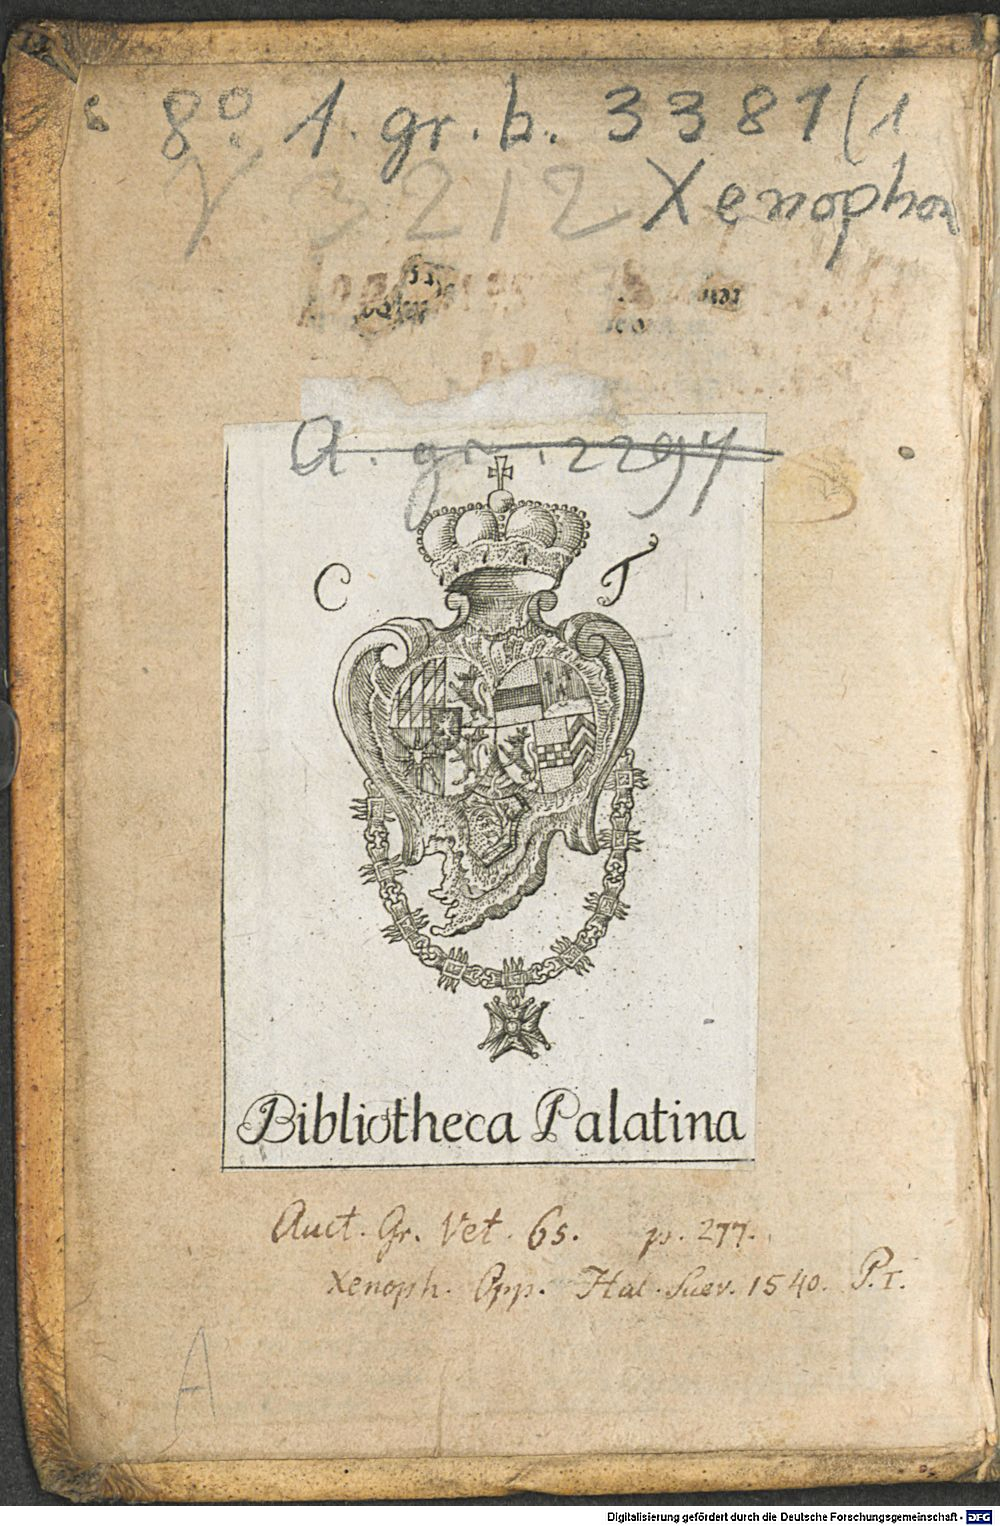 8° A. gr. b. 3381(1
3212
Xenophon
A. gr. 2297
C T
Bibliotheca Palatina
Auct. Gr. Vet. 65. p. 277.
Xenoph. Opp. Hal. Suev. 1540. P. I.
A
Digitalisierung gefördert durch die Deutsche Forschungsgemeinschaft - DFG